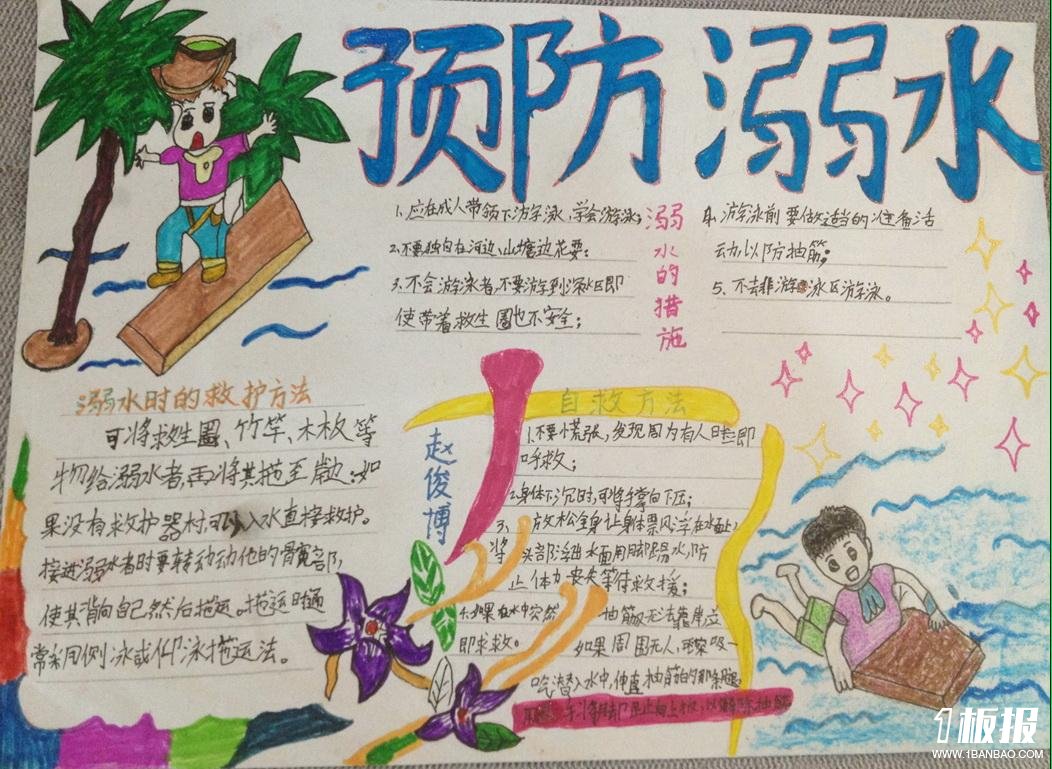 预防溺水
1、应在成人带领下游泳,学会游泳;
2、不要独自在河边、山塘边玩耍;
3、不会游泳者,不要游到深水区即
使带着救生圈也不安全;
溺水的措施
4、游泳前要做适当的准备活
动以防抽筋;
5、不去非游泳区游泳。
溺水时的救护方法
可将救生圈、竹竿、木板等
物给溺水者,再将其拖至岸边;如
果没有救护器材,可入水直接救护。
接近溺水者时要转动动他的髋部,
使其背向自己然后拖运。拖运时通
常采用侧泳或仰泳拖运法。
赵俊博
自救方法
1.不要慌张,发现周为有人时立即
呼救;
2.身体下沉时,可将手掌向下压;
3、放松全身让身体票风浮在水面上
将头部浮出水面用脚踢水,防
止体力丧失等待救援;
4.如果在水中突然抽筋又无法靠岸立
即求救。如果周围无人,可深吸一
口潜入水中,伸直抽筋的那条腿
1板报
WWW.1BANBAO.COM